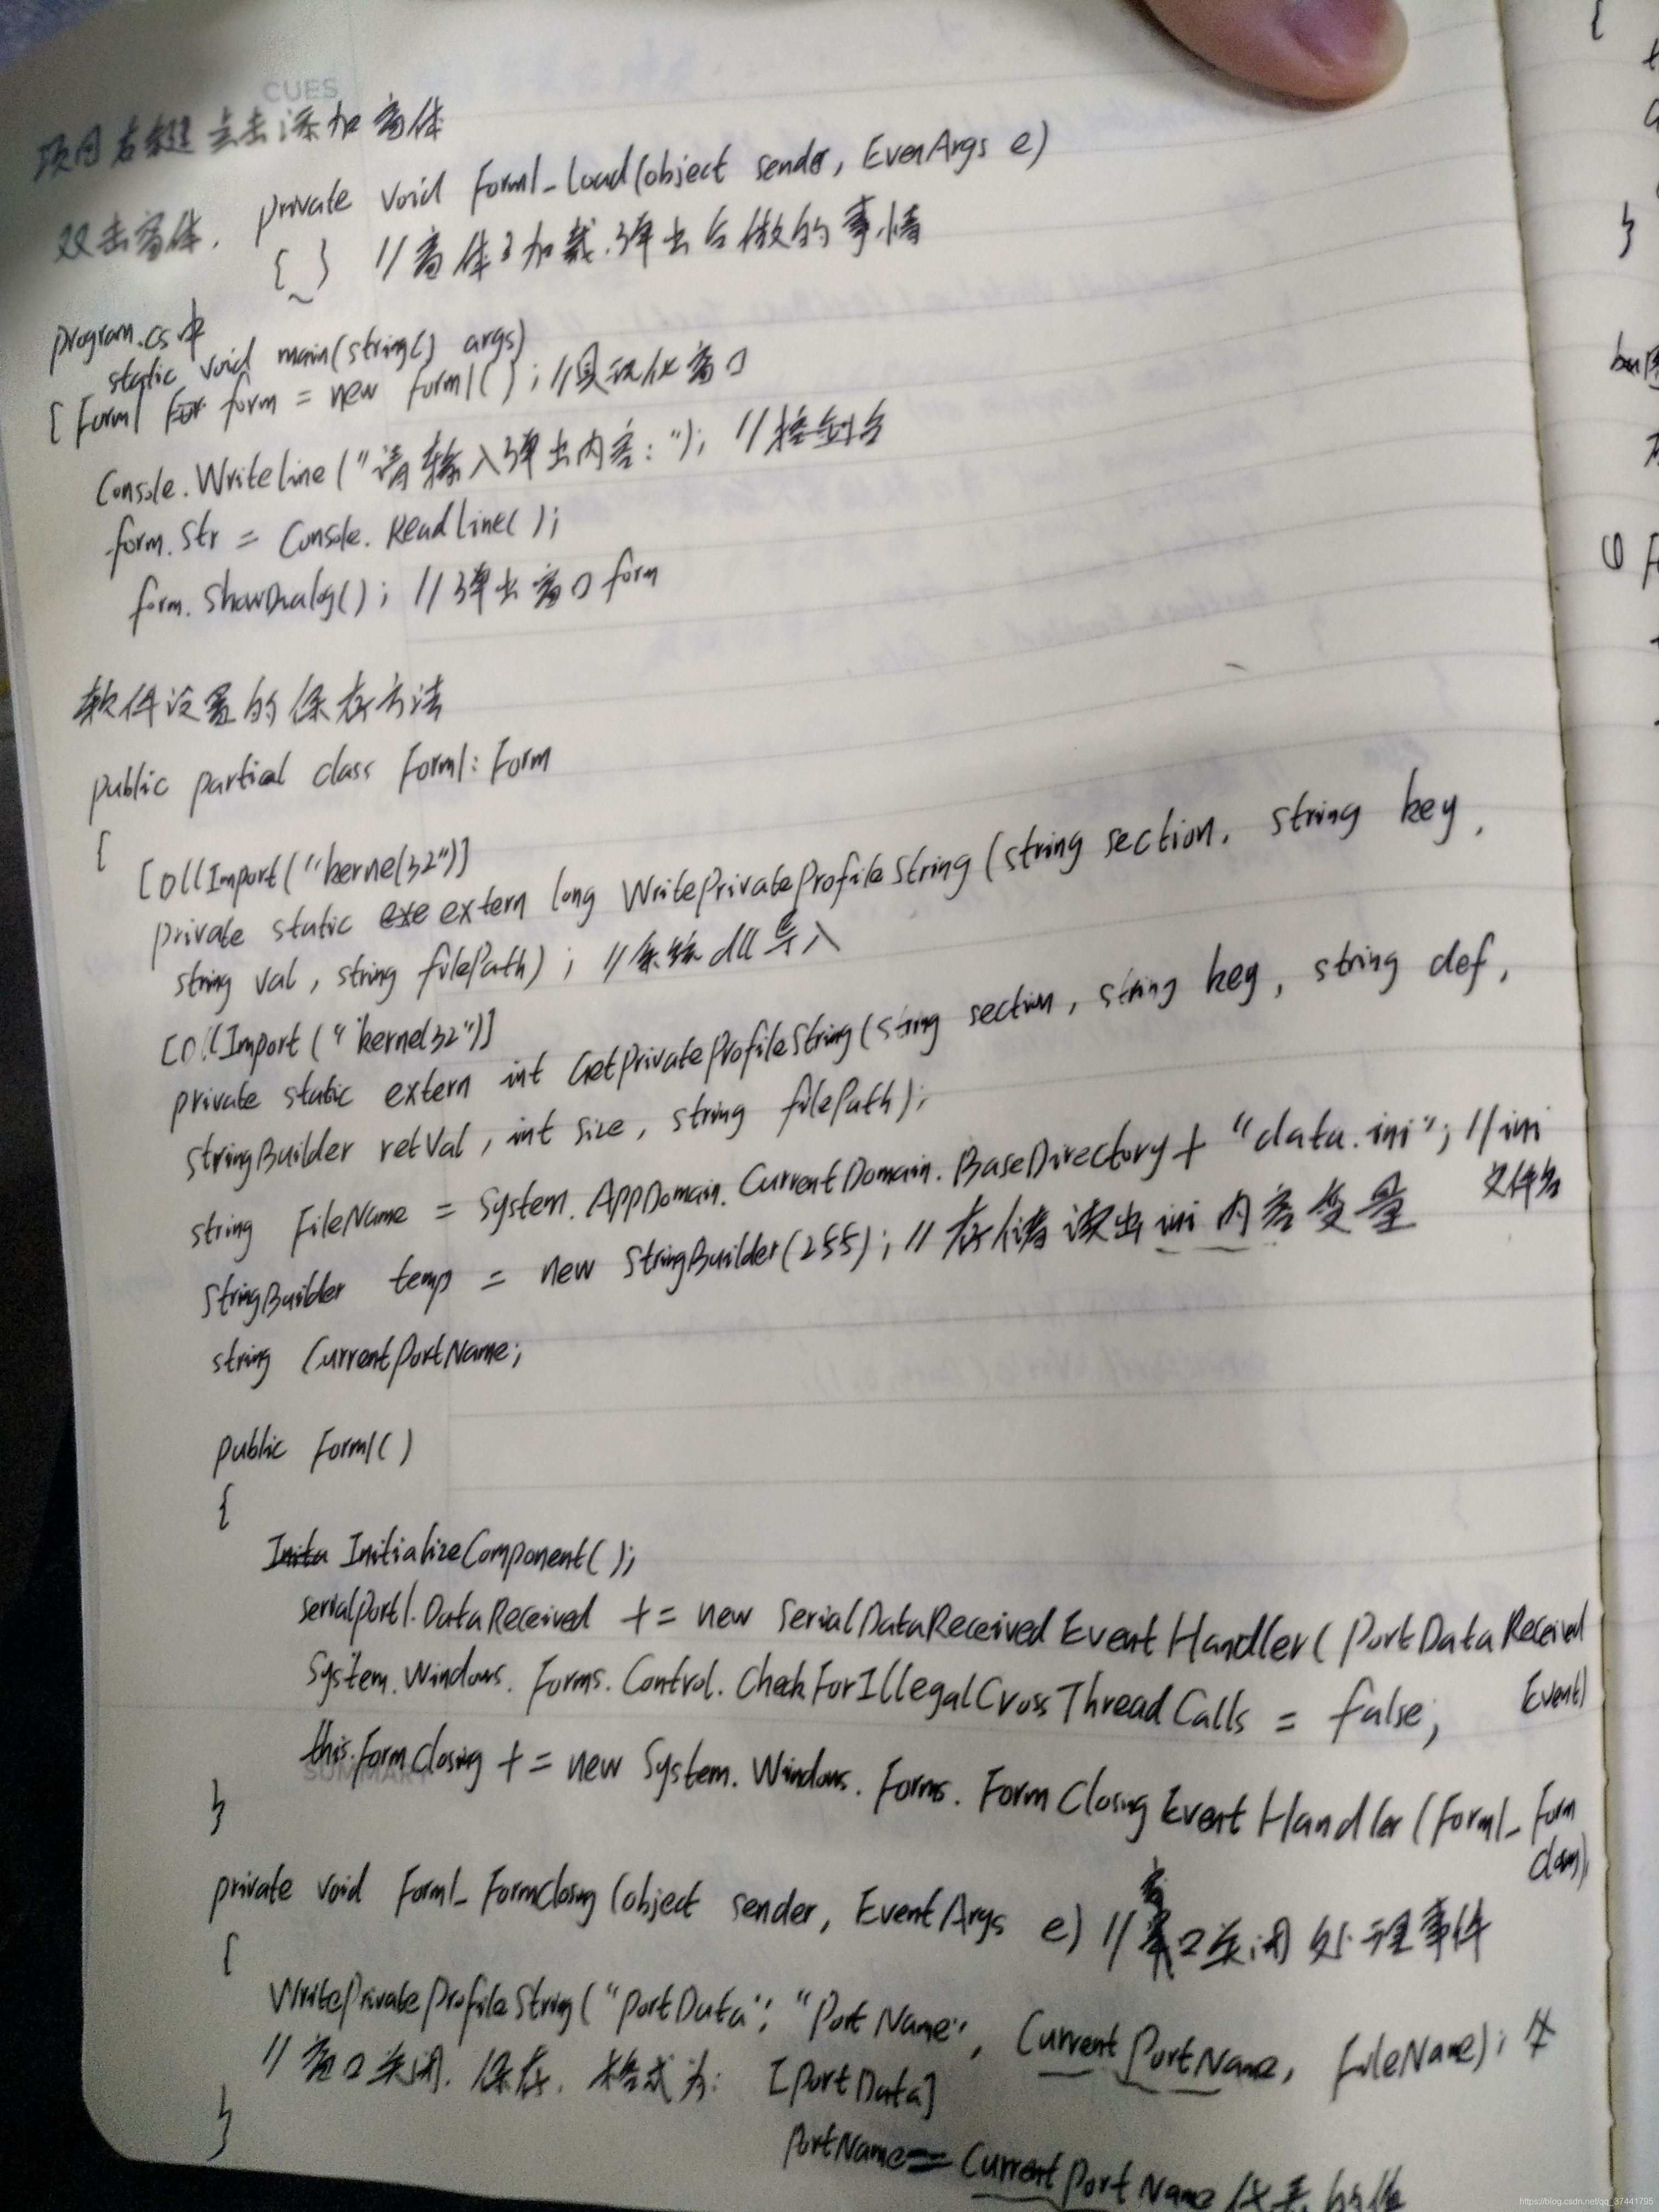 CUES
项目右键点击添加窗体
双击窗体, private void Form1_Load(object sender, EvenArgs e)
{ ~ } //窗体加载.弹出后做的事情
program.cs中
static void main(string[] args)
{ Form1 form = new Form1(); //具现化窗口
Console.WriteLine("请输入弹出内容:"); //控制台
form.Str = Console.ReadLine();
form.ShowDialog(); //弹出窗口form
软件设置的保存方法
public partial class Form1: Form
{
[DllImport("kernel32")]
private static extern long WritePrivateProfileString(string section, string key,
string val, string filePath); //系统dll导入
[DllImport("kernel32")]
private static extern int GetPrivateProfileString(string section, string key, string def,
StringBuilder retVal, int size, string filePath);
string FileName = System.AppDomain.CurrentDomain.BaseDirectory + "data.ini"; //ini
文件名
StringBuilder temp = new StringBuilder(255); //存储读出ini内容变量
string CurrentPortName;
public Form1()
{
InitializeComponent();
serialPort1.DataReceived += new SerialDataReceivedEventHandler(PortDataReceived
Event)
System.Windows.Forms.Control.CheckForIllegalCrossThreadCalls = false;
this.FormClosing += new System.Windows.Forms.FormClosingEventHandler(Form1_Form
SUMMARY
}
private void Form1_FormClosing(object sender, EventArgs e) //窗口关闭处理事件
{
WritePrivateProfileString("PortData", "PortName", CurrentPortName, FileName);
//窗口关闭.保存.格式为: [PortData]
}
PortName = CurrentPortName
{
}
https://blog.csdn.net/qq_37441795